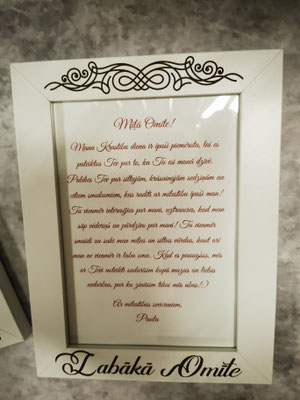 Mīļā Omīte!
Mana Kristību diena ir īpaši piemērota, lai es
pateiktos Tev par to, ka Tu esi manā dzīvē.
Paldies Tev par siltajām, krāsainajām sedziņām un
citiem smukumiem, kas radīti ar mīlestību īpaši man!
Tu vienmēr interesējies par mani, uztraucies, kad man
sāp vēderiņš un pārdzīvo par mani! Tu vienmēr
smaidi un saki man mīļus un siltus vārdus, kaut arī
man ne vienmēr ir laba oma. Kad es paaugšos, mēs
ar Tevi noteikti sadarīsim kopā mazus un lielus
nedarbus, par ko zināsim tikai mēs abas!:)
Ar mīlestības sveicieniem,
Paula
Labākā Omīte